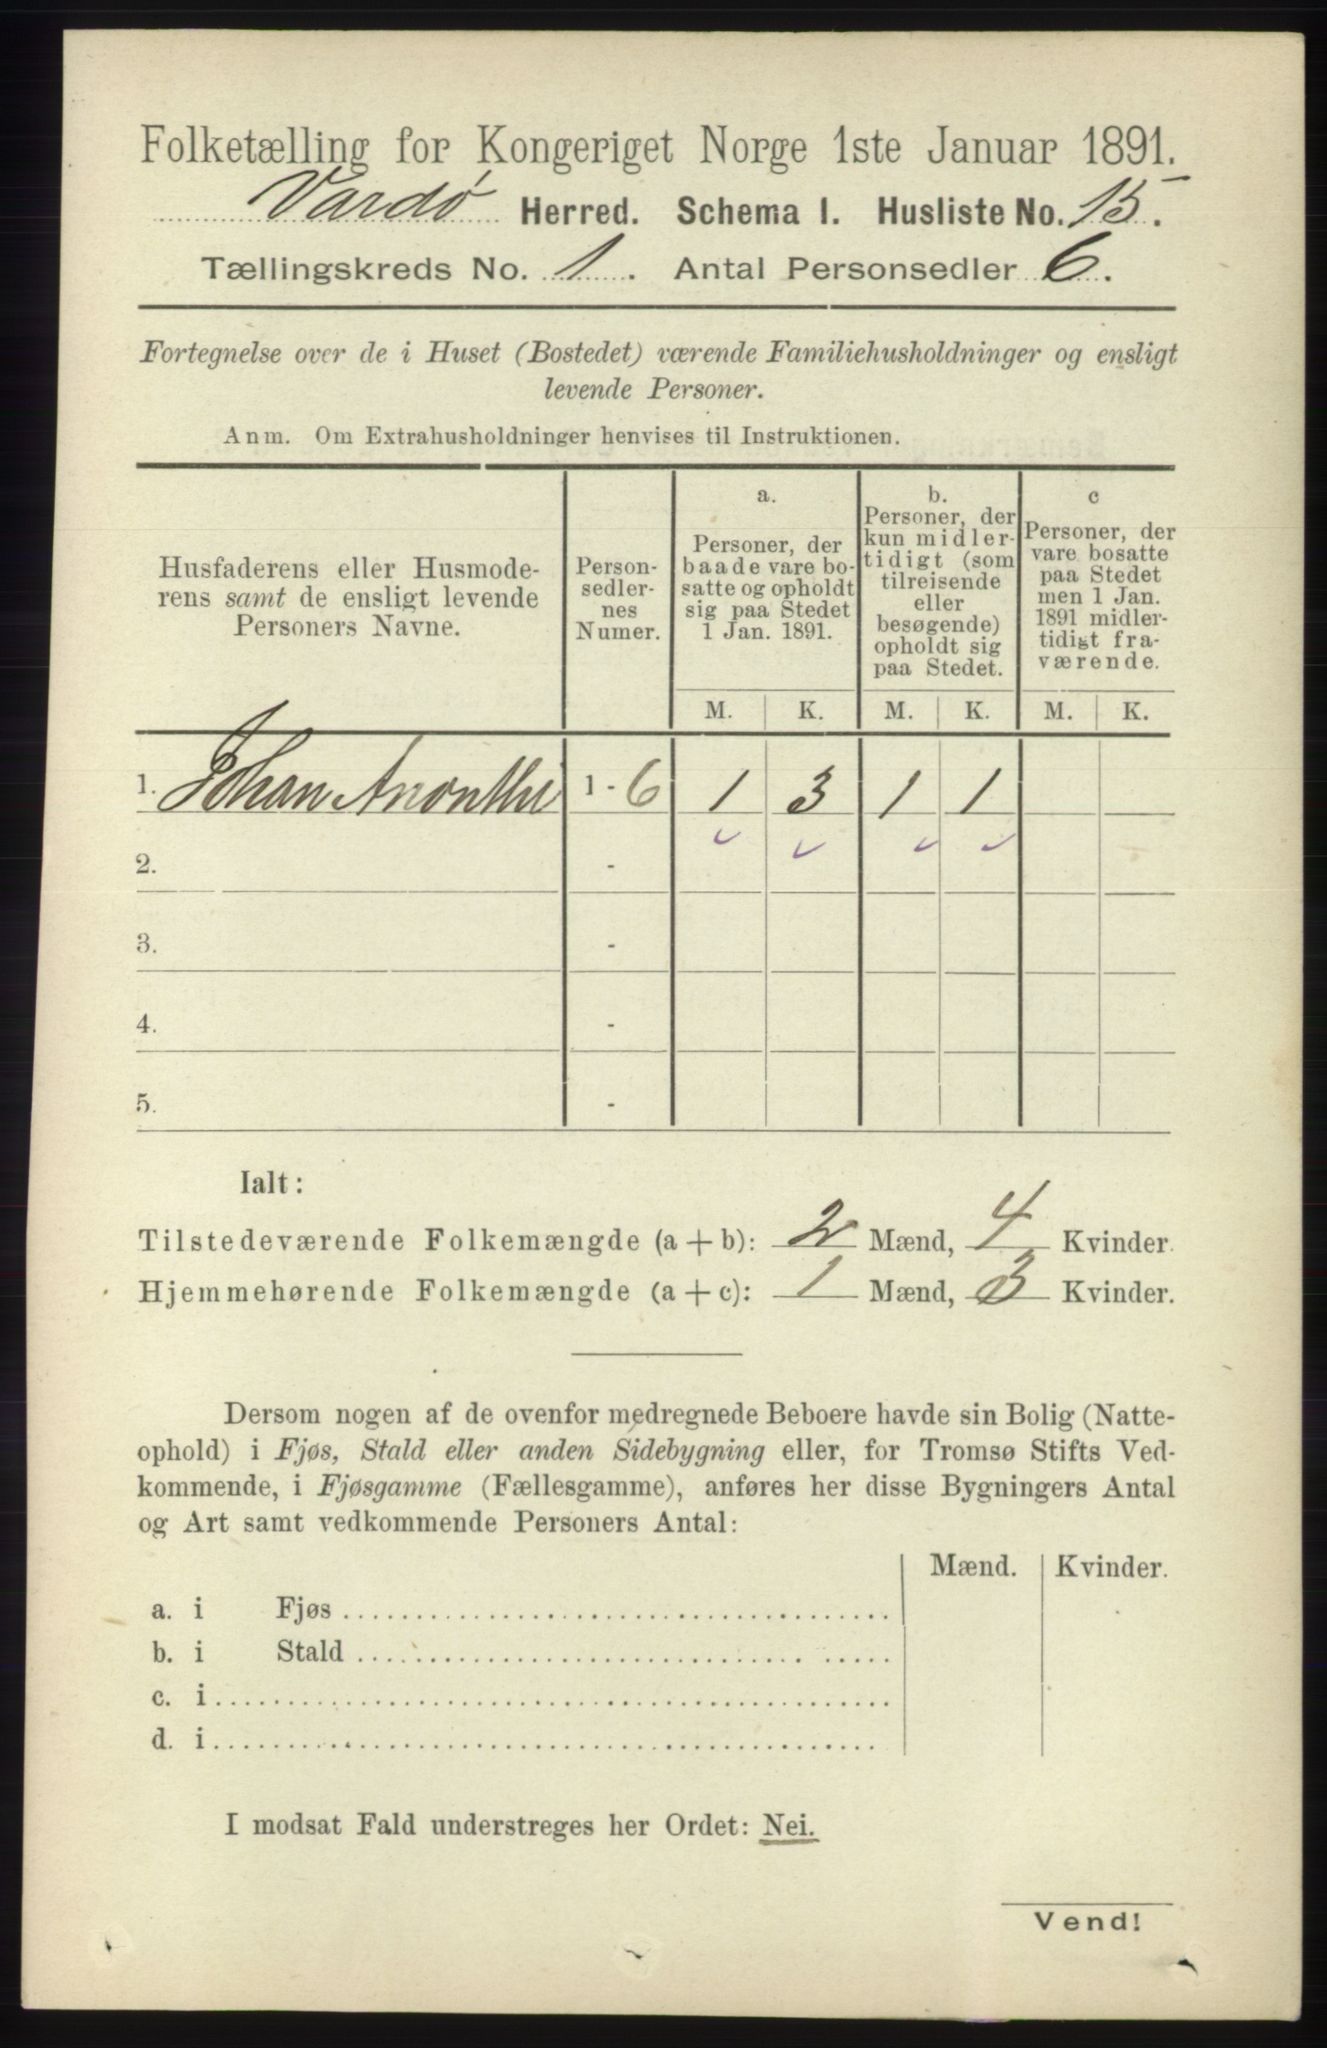 Folketælling for Kongeriget Norge 1ste Januar 1891.
Vardø Herred. Schema I. Husliste No. 15.
Tællingskreds No. 1. Antal Personsedler 6.
Fortegnelse over de i Huset (Bostedet) værende Familiehusholdninger og ensligt
levende Personer.
Anm. Om Extrahusholdninger henvises til Instruktionen.
Husfaderens eller Husmode-
rens samt de ensligt levende
Personers Navne.
Person-
sedler-
nes
Numer.
a.
Personer, der
baade vare bo-
satte og opholdt
sig paa Stedet
1 Jan. 1891.
b.
Personer, der
kun midler-
tidigt (som
tilreisende
eller
besøgende)
opholdt sig
paa Stedet.
c
Personer, der
vare bosatte
paa Stedet
men 1 Jan.
1891 midler-
tidigt fra-
værende.
M. K. M. K. M. K.
1. Johan 1 - 6 1 3 1 1
2. -
3. -
4. -
5. -
Ialt:
Tilstedeværende Folkemængde (a + b): 2 Mænd, 4 Kvinder.
Hjemmehørende Folkemængde (a + c): 1 Mænd, 3 Kvinder.
Dersom nogen af de ovenfor medregnede Beboere havde sin Bolig (Natte-
ophold) i Fjøs, Stald eller anden Sidebygning eller, for Tromsø Stifts Ved-
kommende, i Fjøsgamme (Fællesgamme), anføres her disse Bygningers Antal
og Art samt vedkommende Personers Antal:
Mænd. Kvinder.
a. i Fjøs
b. i Stald
c. i
d. i
I modsat Fald understreges her Ordet: Nei.
Vend!